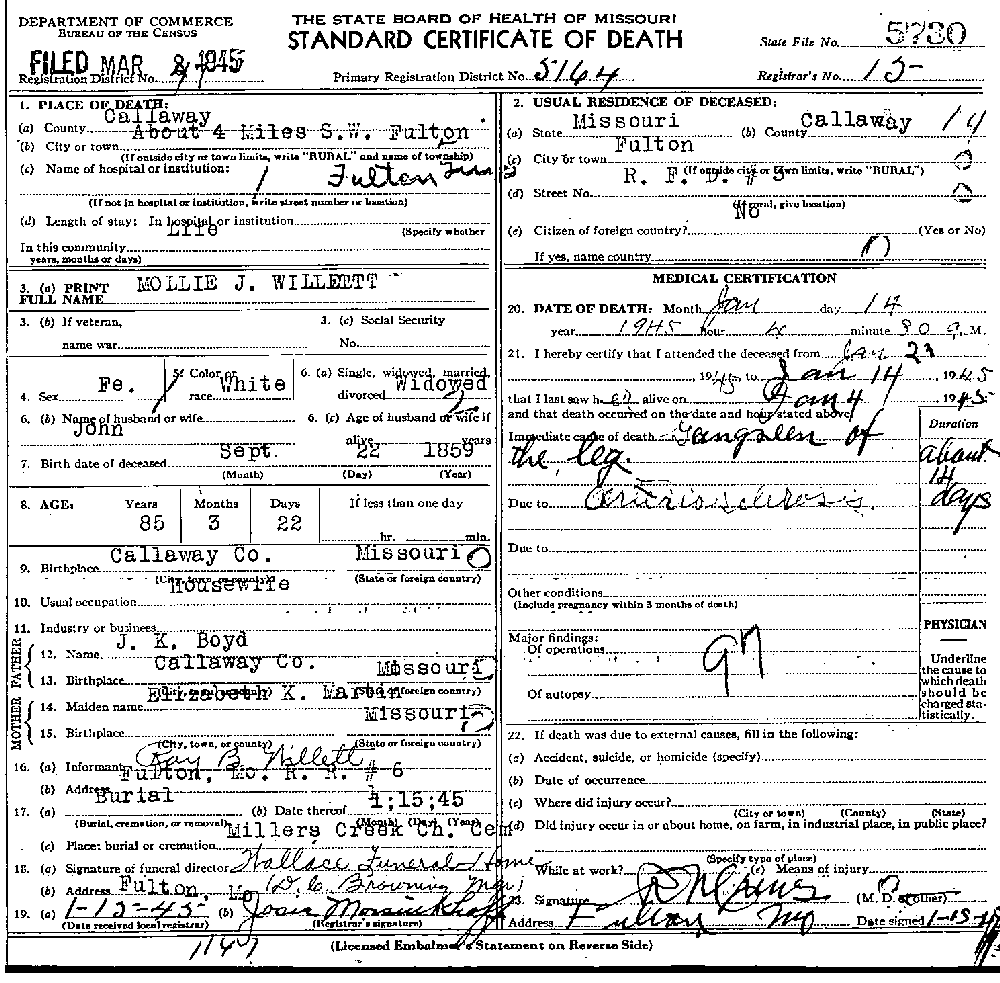 DEPARTMENT OF COMMERCE
BUREAU OF THE CENSUS
THE STATE BOARD OF HEALTH OF MISSOURI
STANDARD CERTIFICATE OF DEATH
State File No. 5730
FILED MAR 1945
Registration District No.
Primary Registration District No. 5164
Registrar's No. 15-
1. PLACE OF DEATH:
(a) County Callaway
(b) City or town About 4 Miles S.W. Fulton
(If outside city or town limits, write "RURAL" and name of township)
(c) Name of hospital or institution: Fulton
(If not in hospital or institution, write street number or location)
(d) Length of stay: In hospital or institution
(Specify whether
In this community Life
years, months or days)
2. USUAL RESIDENCE OF DECEASED:
(a) State Missouri (b) County Callaway 14
(c) City or town Fulton
(If outside city or town limits, write "RURAL")
(d) Street No. R. F. D. #
(If rural, give location)
(e) Citizen of foreign country? No (Yes or No)
If yes, name country
3. (a) PRINT FULL NAME MOLLIE J. WILLETT
3. (b) If veteran, name war
3. (c) Social Security No.
4. Sex Fe.
5. Color or race White
6. (a) Single, widowed, married, divorced Widowed
6. (b) Name of husband or wife John
6. (c) Age of husband or wife if alive years
7. Birth date of deceased Sept. 22 1859
(Month) (Day) (Year)
8. AGE: Years Months Days If less than one day
85 3 22 hr. min.
9. Birthplace Callaway Co. Missouri
(City, town, or county) (State or foreign country)
10. Usual occupation Housewife
11. Industry or business
FATHER
12. Name J. K. Boyd
13. Birthplace Callaway Co. Missouri
(State or foreign country)
MOTHER
14. Maiden name Elizabeth K. Martin
15. Birthplace Missouri
(City, town, or county) (State or foreign country)
16. (a) Informant Ray B Willett
(b) Address Fulton, Mo. R. R. # 6
17. (a) Burial (b) Date thereof 1;15;45
(Burial, cremation, or removal) (Month) (Day) (Year)
(c) Place: burial or cremation Millers Creek Ch. Cem
18. (a) Signature of funeral director Wallace Funeral Home
(b) Address Fulton Mo (D. C. Browning Mgr)
19. (a) 1-15-45 (b) Josie
(Date received local registrar) (Registrar's signature)
MEDICAL CERTIFICATION
20. DATE OF DEATH: Month Jan day 14
year 1945 hour 4 minute 30 a. M.
21. I hereby certify that I attended the deceased from
, 1945 to Jan 14, 1945
that I last saw her alive on Jan 4, 1945
and that death occurred on the date and hour stated above.
Duration
Immediate cause of death Gangreen of
the leg. about 14 days
Due to arteriosclerosis.
Due to
Other conditions
(Include pregnancy within 3 months of death)
Major findings:
Of operations
Of autopsy
PHYSICIAN
Underline the cause to which death should be charged statistically.
22. If death was due to external causes, fill in the following:
(a) Accident, suicide, or homicide (specify)
(b) Date of occurrence
(c) Where did injury occur?
(City or town) (County) (State)
(d) Did injury occur in or about home, on farm, in industrial place, in public place?
(Specify type of place)
While at work? (e) Means of injury
23. Signature (M. D. or other)
Address Fulton Mo Date signed 1-15-45
(Licensed Embalmer's Statement on Reverse Side)